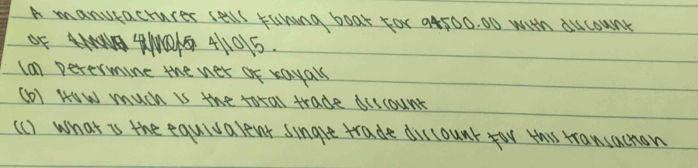 A manufacturer sells fishing boat for 94500.00 with discount
of 4/10/5.
(a) Determine the net of kayak
(b) How much is the total trade discount
(c) What is the equivalent single trade discount for this transaction